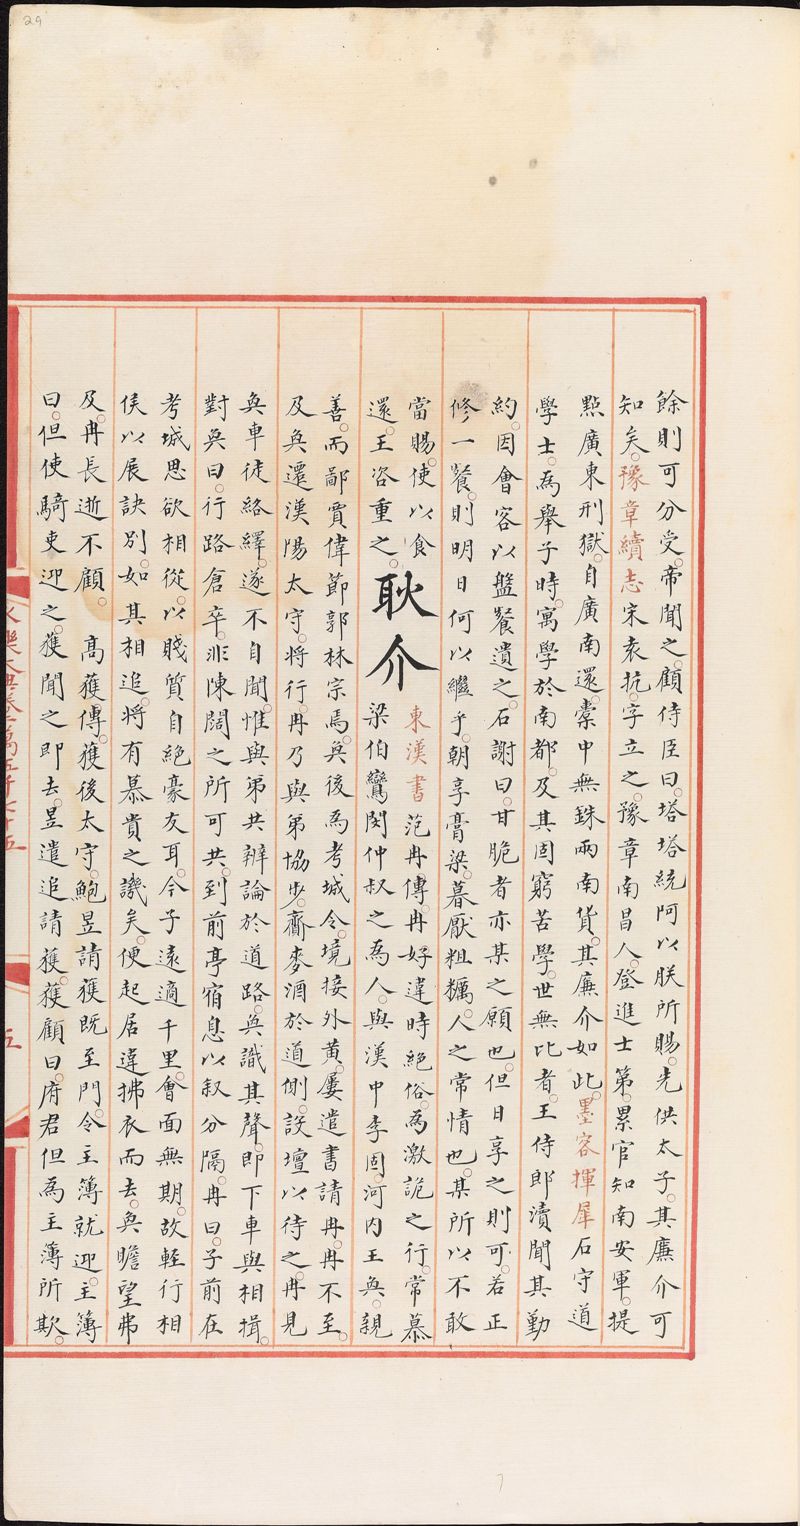 29
餘則可分受。帝聞之。顧侍臣曰。塔塔統阿以朕所賜。先供太子。其廉介可
知矣。豫章續志宋袁抗。字立之。豫章南昌人。登進士第。累官知南安軍。提
點廣東刑獄。自廣南還。橐中無銖兩南貨。其廉介如此。墨客揮犀石守道
學士。為舉子時。寓學於南都。及其固窮苦學。世無比者。王侍郎瀆聞其勤
約。因會客以盤餐遺之。石謝曰。甘脆者亦某之願也。但日享之則可。若正
修一餐。則明日何以繼乎。朝享膏粱。暮厭粗糲。人之常情也。某所以不敢
當賜。使以食
還。王咨重之。耿介
東漢書范冉傳。冉好違時絕俗。為激詭之行。常慕
梁伯鸞閔仲叔之為人。與漢中李固。河內王奐。親
善。而鄙賈偉節郭林宗焉。奐後為考城令。境接外黃。屢遣書請冉。冉不至。
及奐遷漢陽太守。將行。冉乃與弟協步。齎麥酒於道側。設壇以待之。冉見
奐車徒絡繹。遂不自聞。惟與弟共辯論於道路。奐識其聲。即下車與相揖。
對奐曰。行路倉卒。非陳闊之所可共。到前亭宿息。以叙分隔。冉曰。子前在
考城思欲相從。以賤質自絕豪友耳。今子遠適千里。會面無期。故輕行相
俟以展訣別。如其相追。將有慕貴之譏矣。便起居違拂衣而去。奐瞻望弗
及。冉長逝不顧。 高獲傳。獲後太守。鮑昱請獲既至門。令主簿就迎。主簿
曰。但使騎吏迎之。獲聞之即去。昱遣追請獲。獲顧曰。府君但為主簿所欺。
永樂大典卷二萬五千七十五
五